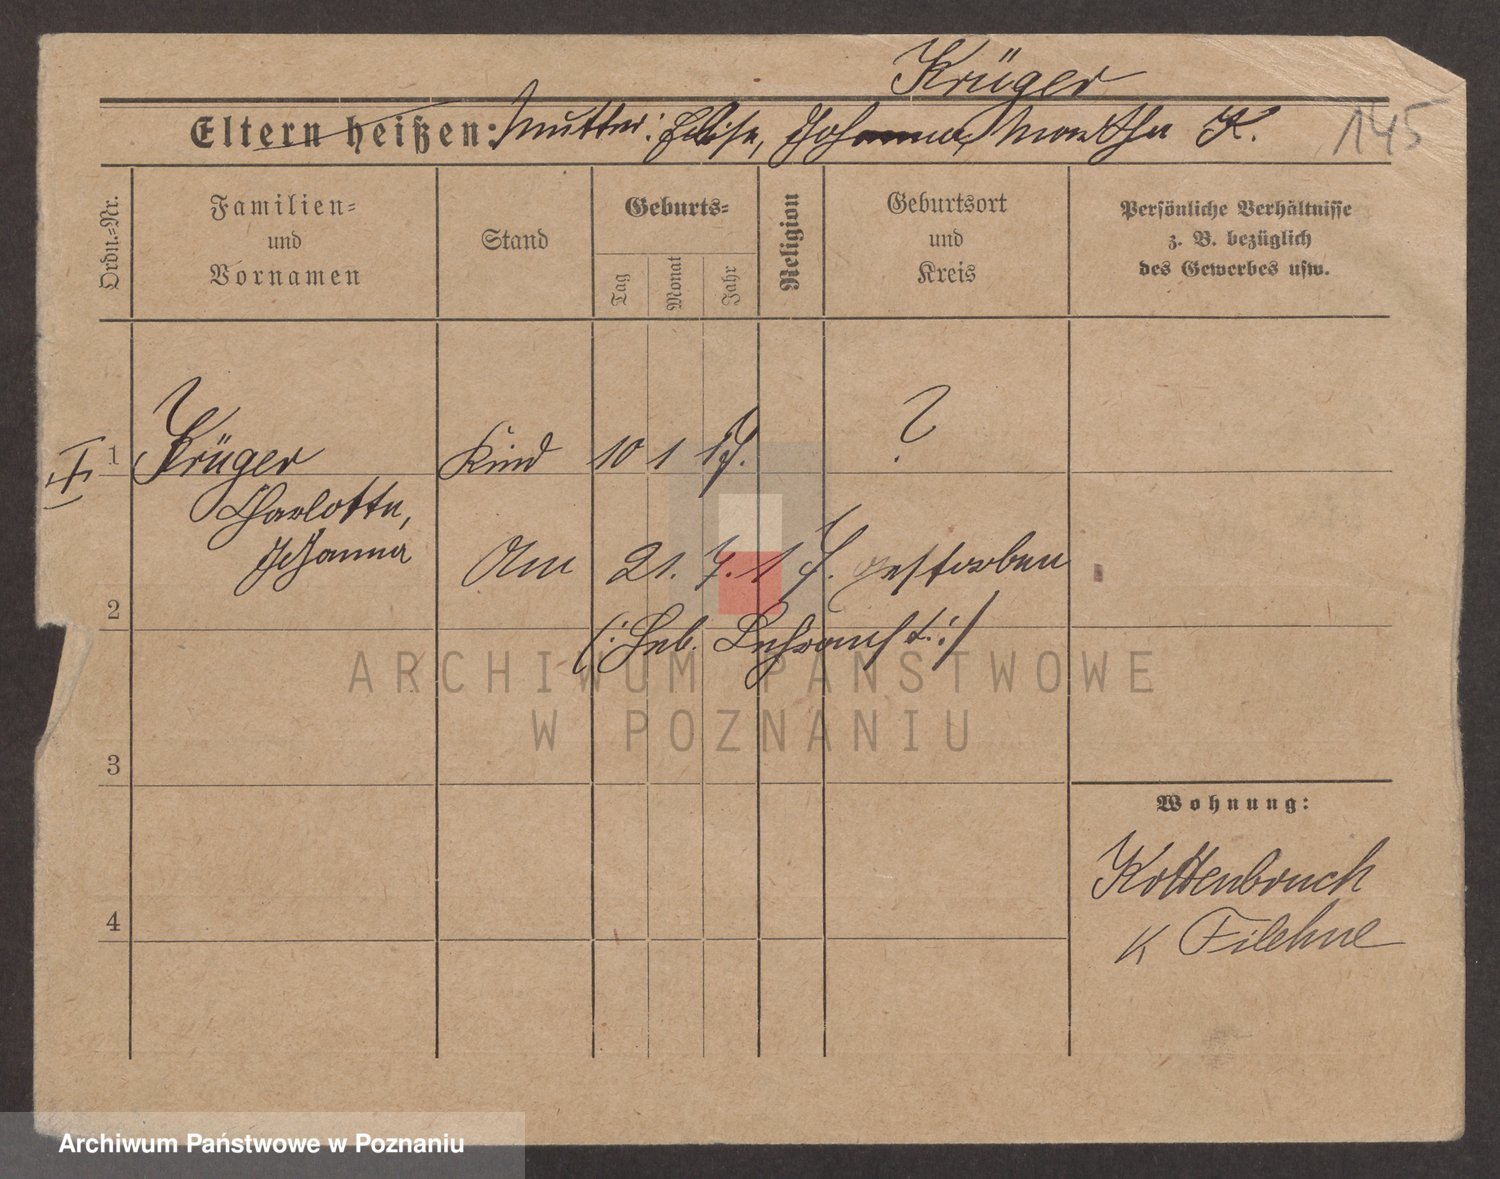 Krüger
Eltern heißen: Mutter: Elise, Johanna Martha K.
145
Ordn.=Nr.
Familien=
und
Vornamen
Stand
Geburts=
Tag
Monat
Jahr
Religion
Geburtsort
und
Kreis
Persönliche Verhältnisse
z. B. bezüglich
des Gewerbes usw.
I 1 Krüger Kind 10 1 17. ?
Charlotte,
Johanna
Am 21. 7. 17. gestorben
2
(: Geb.
3
4
Wohnung:
Kottenbruch
K Filehne
ARCHIWUM PAŃSTWOWE
W POZNANIU
Archiwum Państwowe w Poznaniu